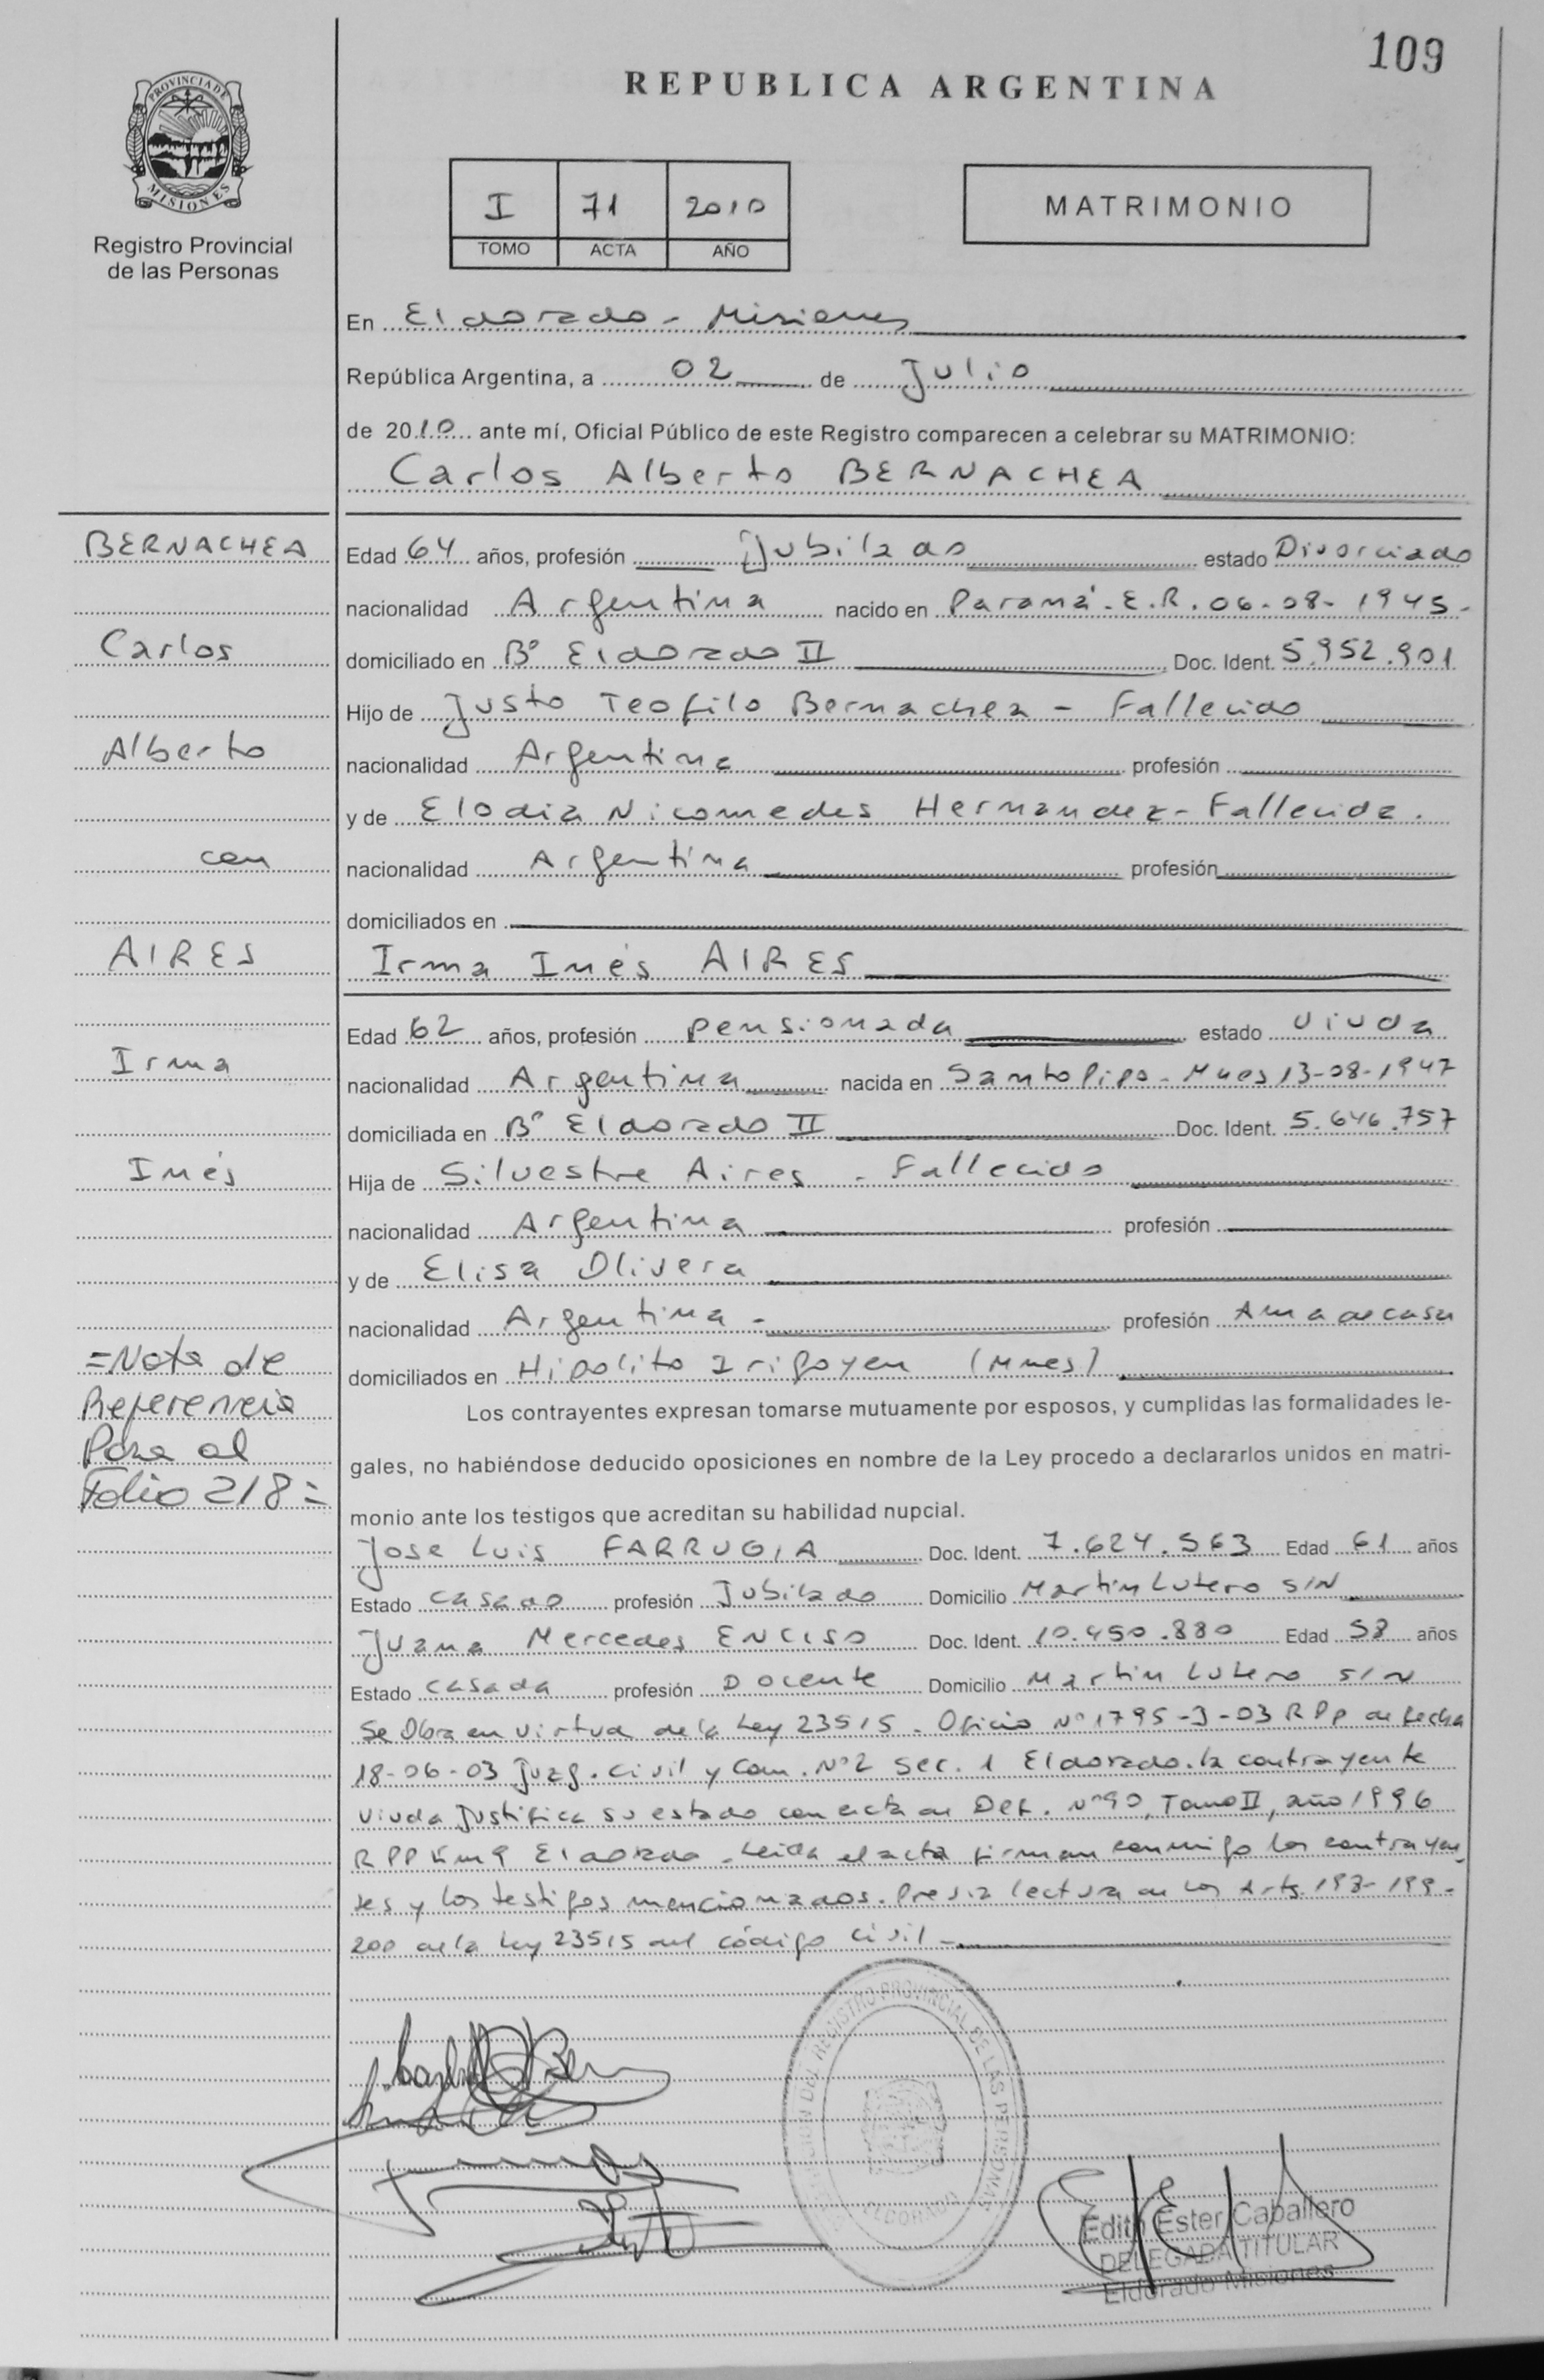 109
REPUBLICA ARGENTINA
PROVINCIA DE MISIONES
Registro Provincial
de las Personas
I 71 2010
TOMO ACTA AÑO
MATRIMONIO
En Eldorado - Misiones
República Argentina, a 02 de Julio
de 2010 ante mí, Oficial Público de este Registro comparecen a celebrar su MATRIMONIO:
Carlos Alberto BERNACHEA
BERNACHEA
Carlos
Alberto
con
AIRES
Irma
Inés
=Nota de
Referencia
Pasa al
Folio 218=
Edad 64 años, profesión Jubilado estado Divorciado
nacionalidad Argentina nacido en Paraná - E.R. 06-08-1945-
domiciliado en B° Eldorado II Doc. Ident. 5.952.901
Hijo de Justo Teofilo Bernachea - Fallecido
nacionalidad Argentina profesión
y de Elodia Nicomedes Hernandez - Fallecida.
nacionalidad Argentina profesión
domiciliados en
Irma Inés AIRES
Edad 62 años, profesión pensionada estado Viuda
nacionalidad Argentina nacida en Santo Pipo - Mnes 13-08-1947
domiciliada en B° Eldorado II Doc. Ident. 5.646.757
Hija de Silvestre Aires - Fallecido
nacionalidad Argentina profesión
y de Elisa Olivera
nacionalidad Argentina - profesión Ama de casa
domiciliados en Hipolito Irigoyen (Mnes)
Los contrayentes expresan tomarse mutuamente por esposos, y cumplidas las formalidades le-
gales, no habiéndose deducido oposiciones en nombre de la Ley procedo a declararlos unidos en matri-
monio ante los testigos que acreditan su habilidad nupcial.
Jose Luis FARRUGIA Doc. Ident. 7.624.563 Edad 61 años
Estado casado profesión Jubilado Domicilio Martin Lutero S/N
Juana Mercedes ENCISO Doc. Ident. 10.450.880 Edad 58 años
Estado casada profesión Docente Domicilio Martin Lutero S/N
Se Obra en virtud de la Ley 23515 - Oficio N° 1795-J-03 RPP de fecha
18-06-03 Juzg. Civil y Com. N°2 Sec. 1 Eldorado. la contrayente
viuda Justifica su estado con acta de Def. N°90, Tomo II, año 1996
RPP Km 9 Eldorado - Leida el acta firman conmigo los contrayen-
tes y los testigos mencionados. Previa lectura de los Arts. 198-199-
200 de la Ley 23515 del código civil -
DEL REGISTRO PROVINCIAL DE LAS PERSONAS
ELDORADO
Edith Ester Caballero
DELEGADA TITULAR
Eldorado Misiones